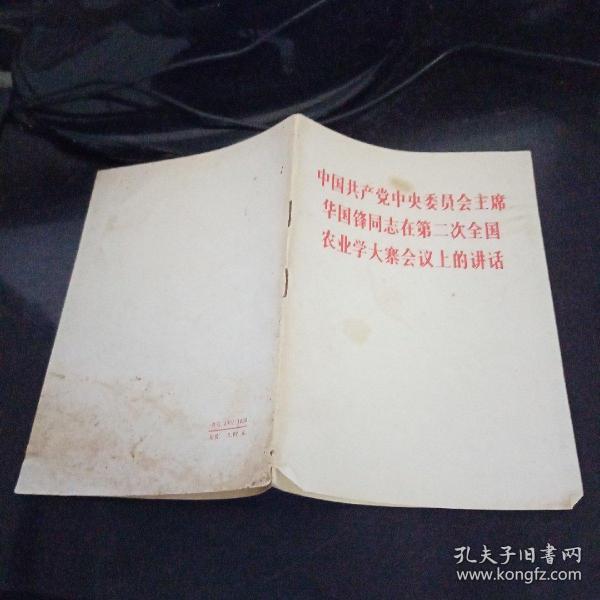 中国共产党中央委员会主席
华国锋同志在第二次全国
农业学大寨会议上的讲话
孔夫子旧書网
www.kongfz.com